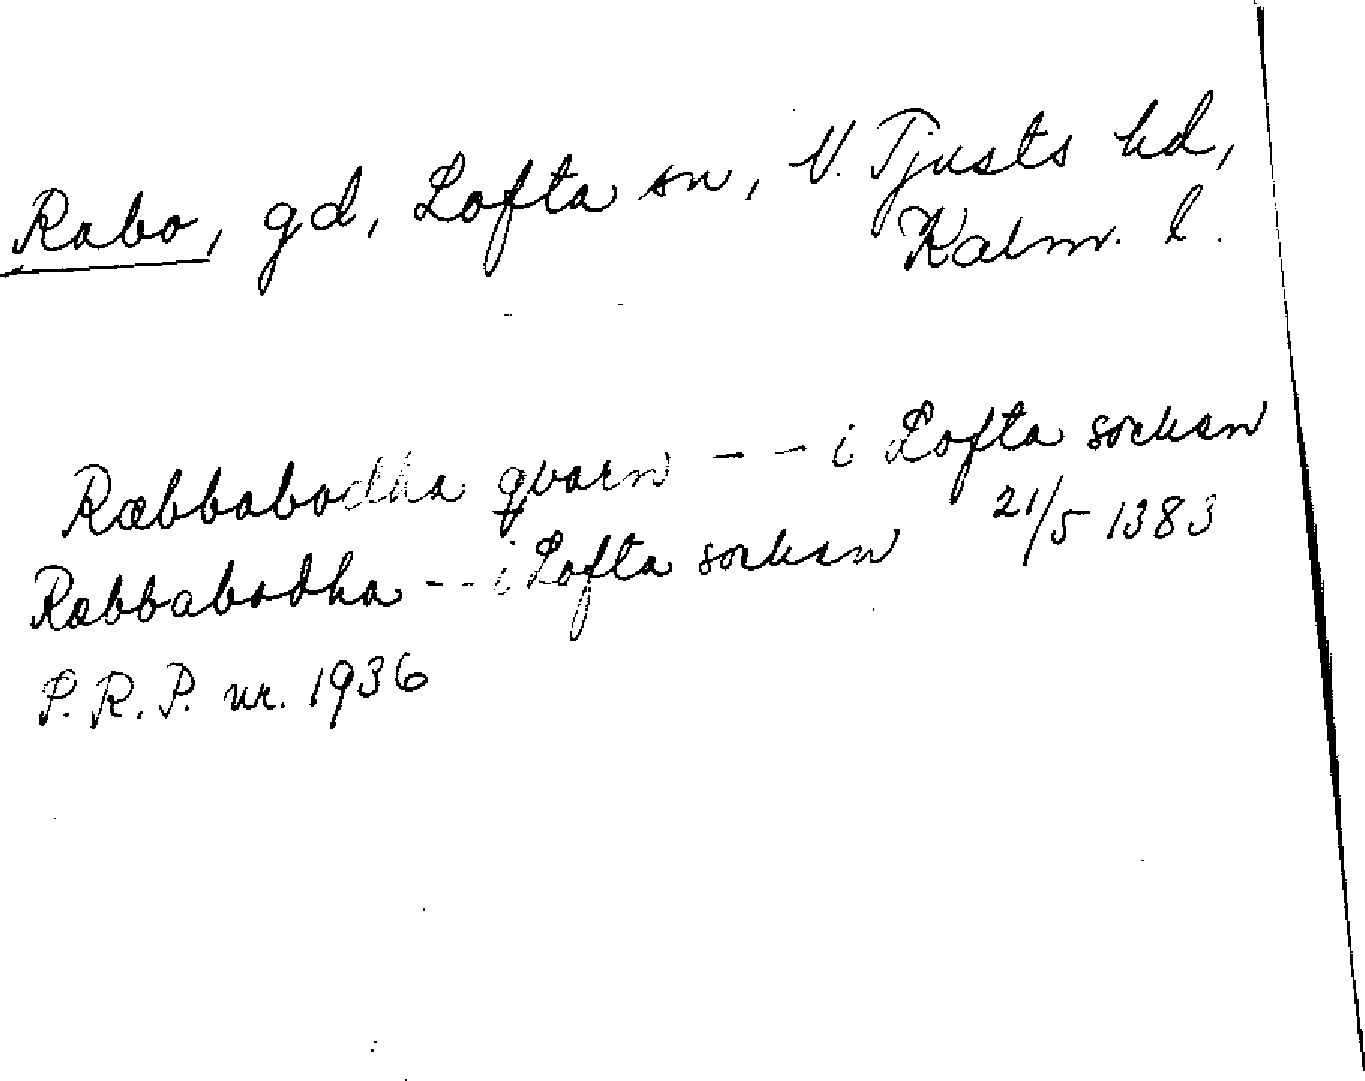 Rabo, gd, Lofta sn, N. Tjusts hd,
Kalm. l.
Ræbbabodha qvarn - - i Lofta socken
21/5 1383
Rabbabodha - - i Lofta socken
S. R. P. nr. 1936